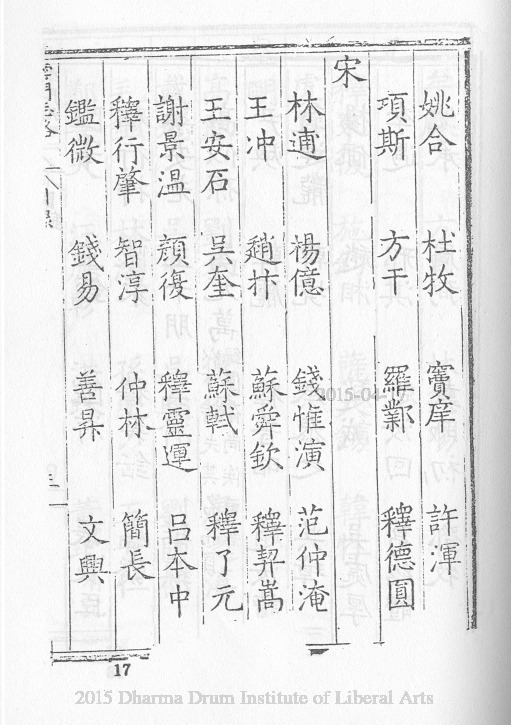 姚合 杜牧 竇庠 許渾
項斯 方干 羅鄴 釋德圓
宋
林逋 楊億 錢惟演 范仲淹
王冲 趙抃 蘇舜欽 釋契嵩
王安石 吳奎 蘇軾 釋了元
謝景温 顏復 釋靈運 呂本中
釋行肇 智淳 仲林 簡長
鑑微 錢易 善昇 文興
17
2015-04-
2015 Dharma Drum Institute of Liberal Arts